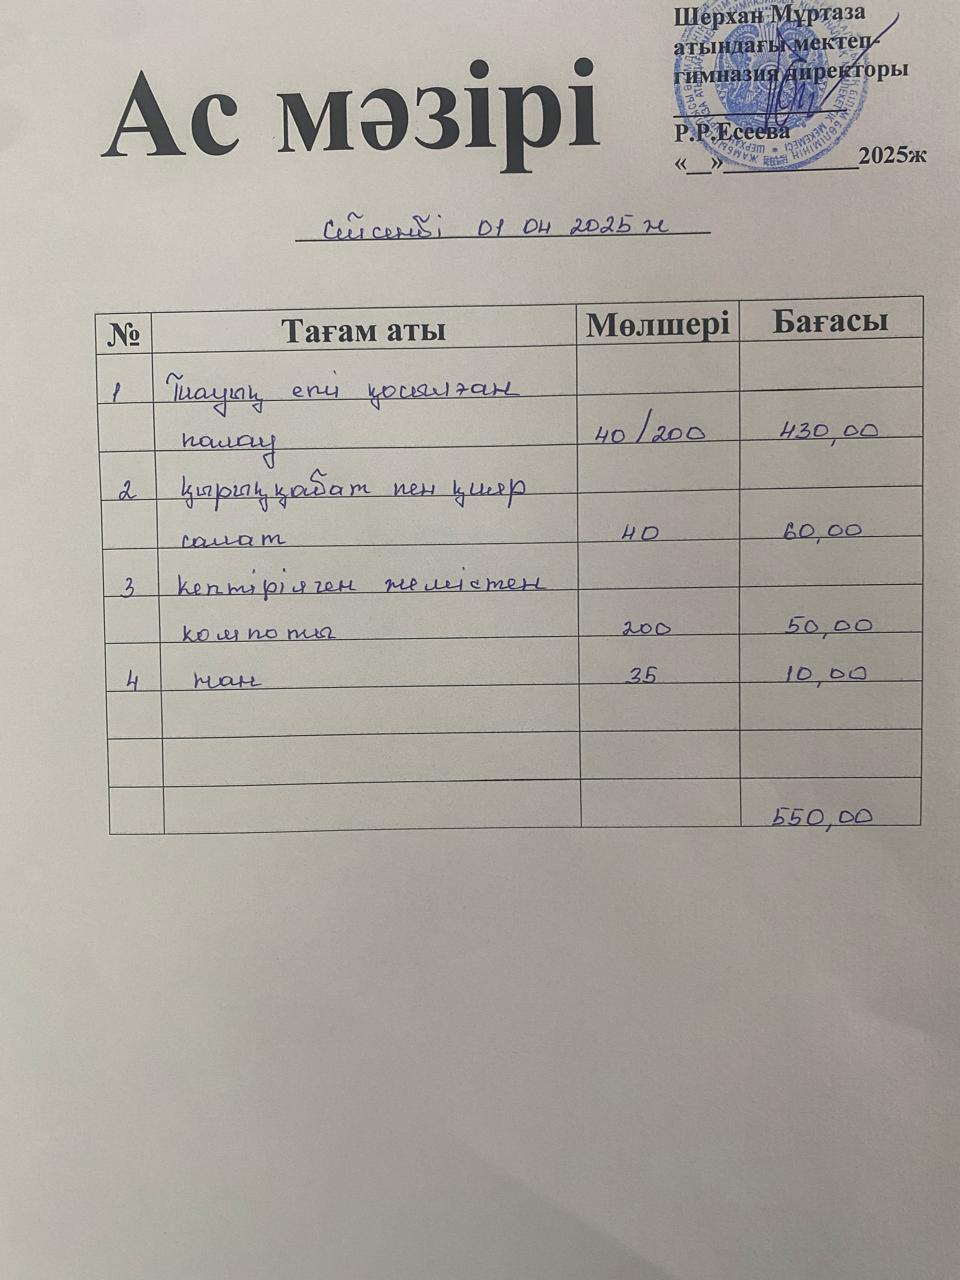 Шерхан Мұртаза
атындағы мектеп-
гимназия директоры
Р.Р.Есеева
«__»___________2025ж
Ас мәзірі
сейсенбі 01 04 2025 ж
№ Тағам аты Мөлшері Бағасы
1 Тауық еті қосылған
палау 40/200 430,00
2 қырыққабат пен қияр
салат 40 60,00
3 кептірілген жемістен
компоты 200 50,00
4 нан 35 10,00
550,00